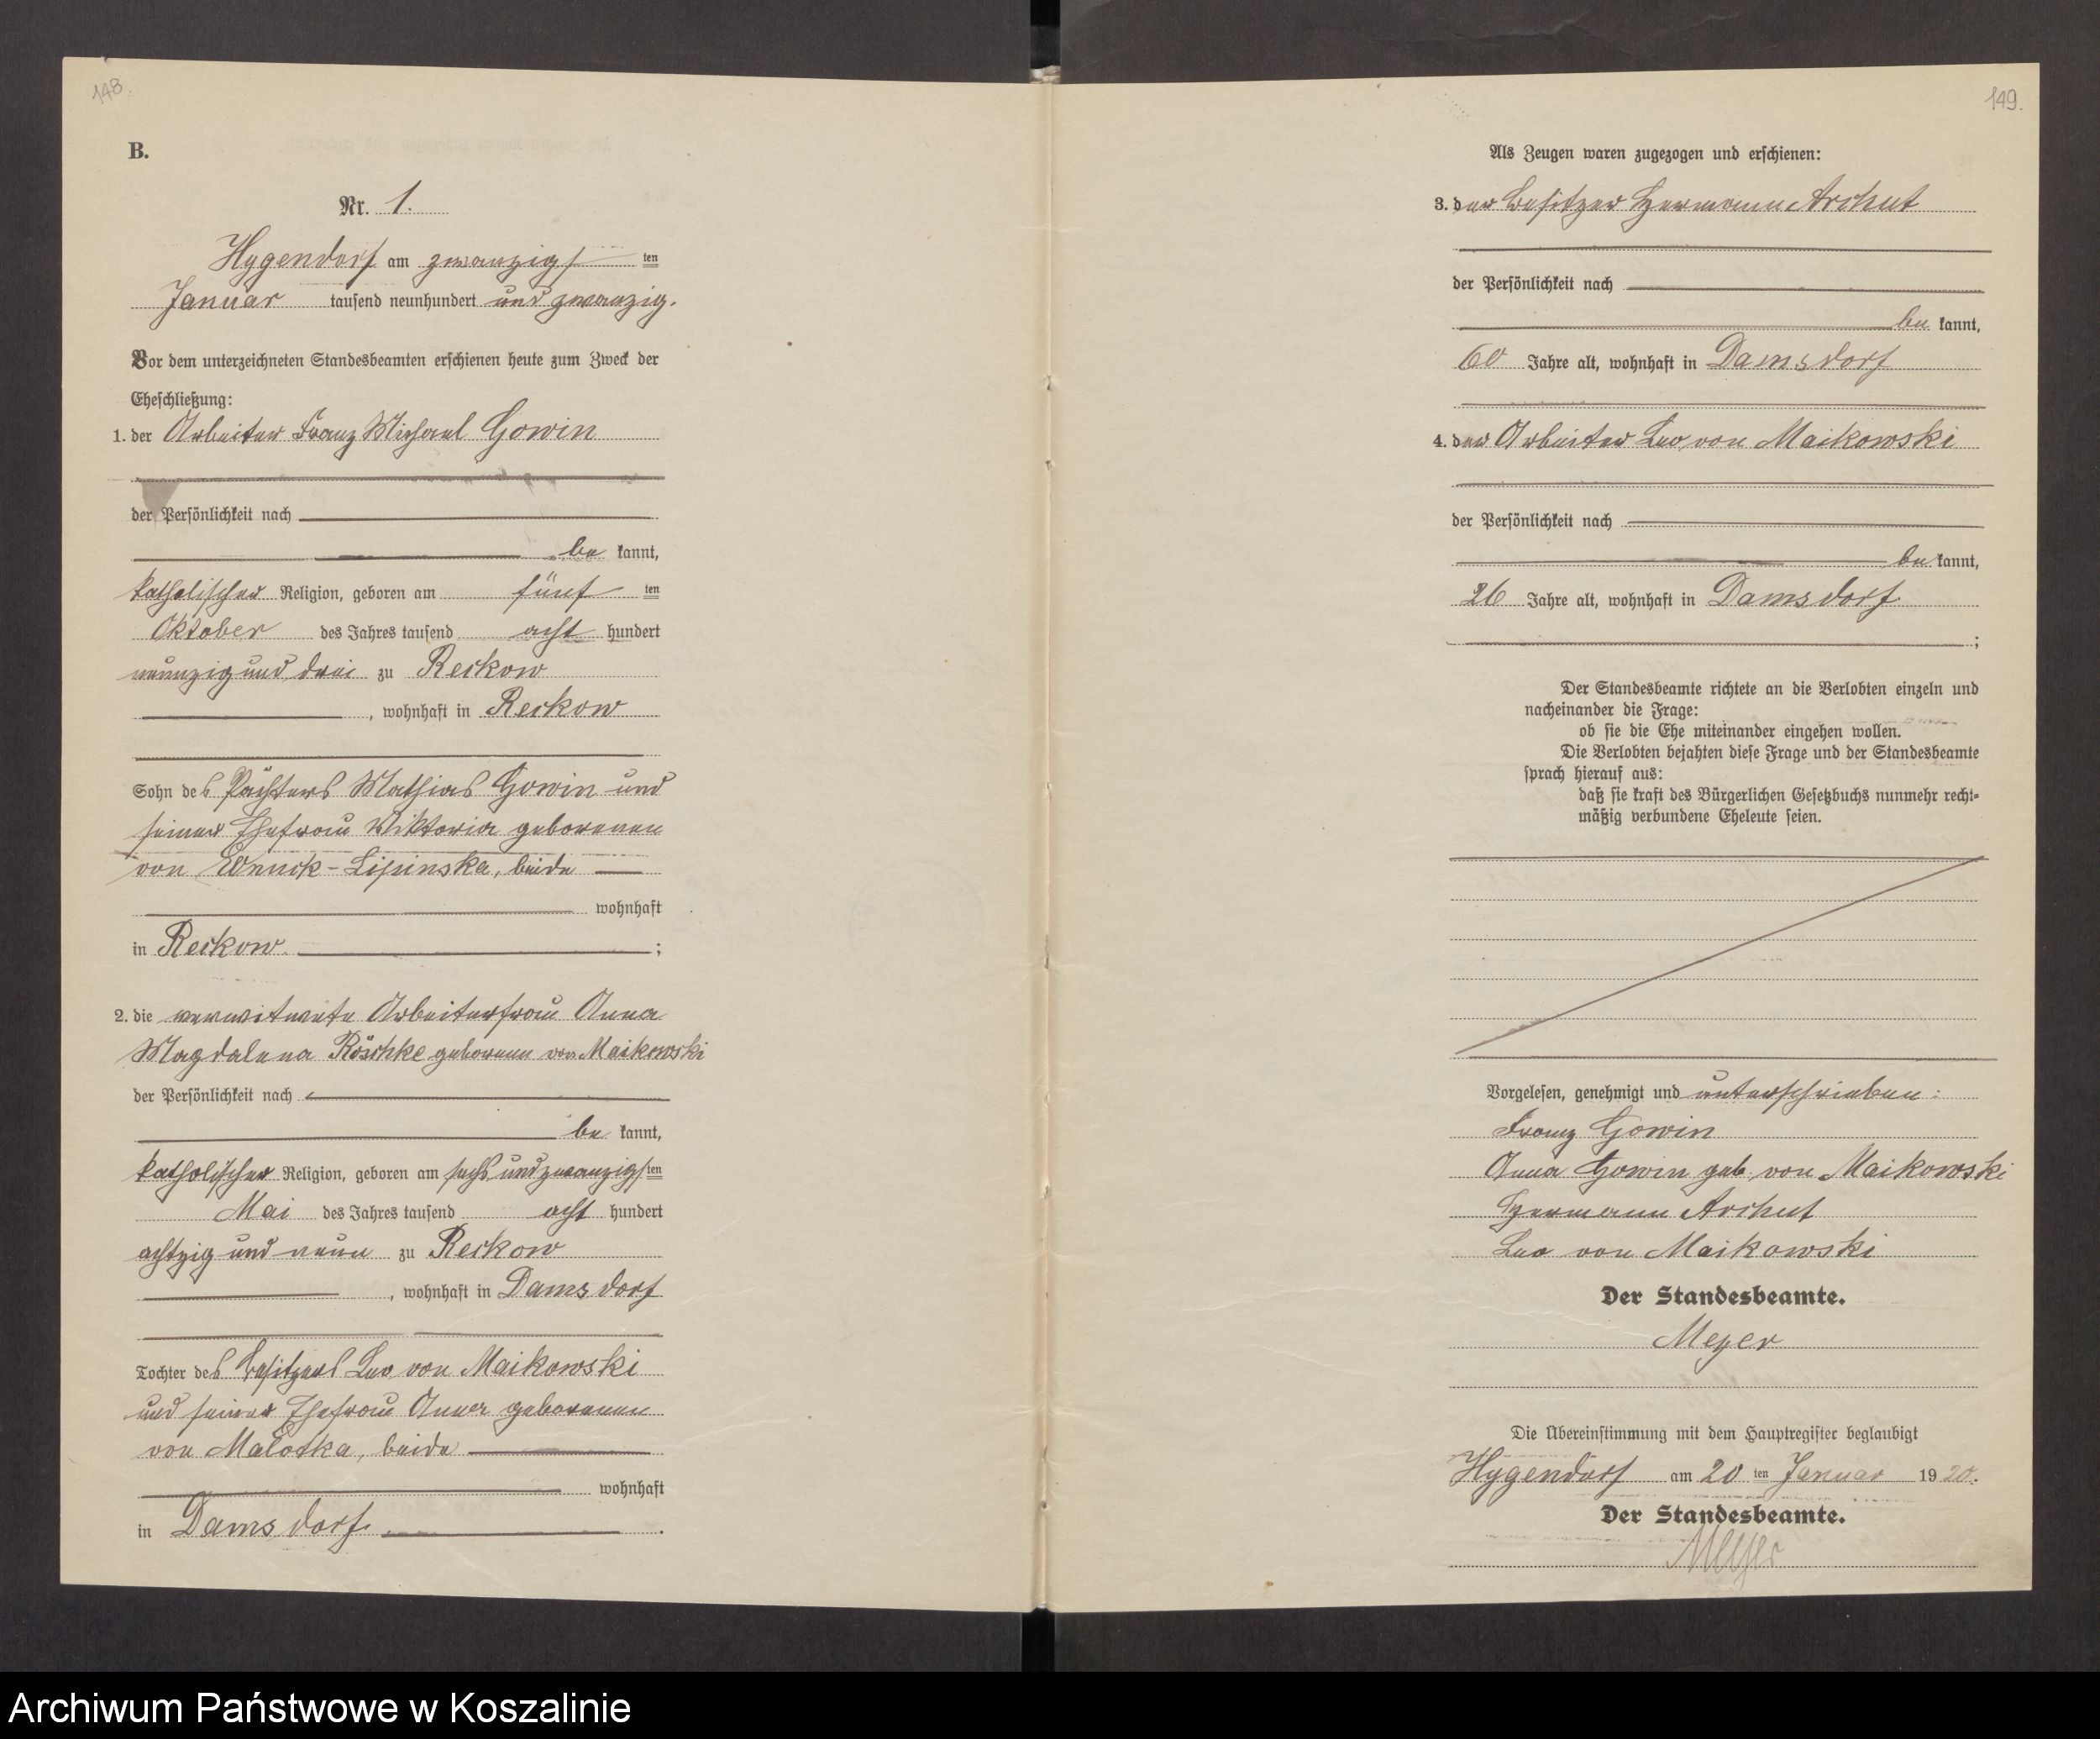 148.
B.
Nr. 1.
Hygendorf am zwanzigs ten
Januar tausend neunhundert und zwanzig.
Vor dem unterzeichneten Standesbeamten erschienen heute zum Zweck der
Eheschließung:
1. der Arbeiter Franz Michael Gowin
der Persönlichkeit nach
be kannt,
katholischer Religion, geboren am fünf ten
Oktober des Jahres tausend acht hundert
neunzig und drei zu Reckow
, wohnhaft in Reckow
Sohn des Pächters Mathias Gowin und
seiner Ehefrau Viktoria geborenen
von Wnuck-Lipinska, beide
wohnhaft
in Reckow. ;
2. die verwitwete Arbeiterfrau Anna
Magdalena Röschke geborene von Maikowski
der Persönlichkeit nach
be kannt,
katholischer Religion, geboren am sechs und zwanzigs ten
Mai des Jahres tausend acht hundert
achtzig und neun zu Reckow
, wohnhaft in Damsdorf
Tochter des Besitzers Leo von Maikowski
und seiner Ehefrau Anna geborenen
von Malotka, beide
wohnhaft
in Damsdorf.
149.
Als Zeugen waren zugezogen und erschienen:
3. der Besitzer Hermann Archut
der Persönlichkeit nach
be kannt,
60 Jahre alt, wohnhaft in Damsdorf
4. der Arbeiter Leo von Maikowski
der Persönlichkeit nach
be kannt,
26 Jahre alt, wohnhaft in Damsdorf
;
Der Standesbeamte richtete an die Verlobten einzeln und
nacheinander die Frage:
ob sie die Ehe miteinander eingehen wollen.
Die Verlobten bejahten diese Frage und der Standesbeamte
sprach hierauf aus:
daß sie kraft des Bürgerlichen Gesetzbuchs nunmehr recht-
mäßig verbundene Eheleute seien.
Vorgelesen, genehmigt und unterschrieben:
Franz Gowin
Anna Gowin geb. von Maikowski
Hermann Archut
Leo von Maikowski
Der Standesbeamte.
Meyer
Die Übereinstimmung mit dem Hauptregister beglaubigt
Hygendorf am 20 ten Januar 1920.
Der Standesbeamte.
Meyer
Archiwum Państwowe w Koszalinie